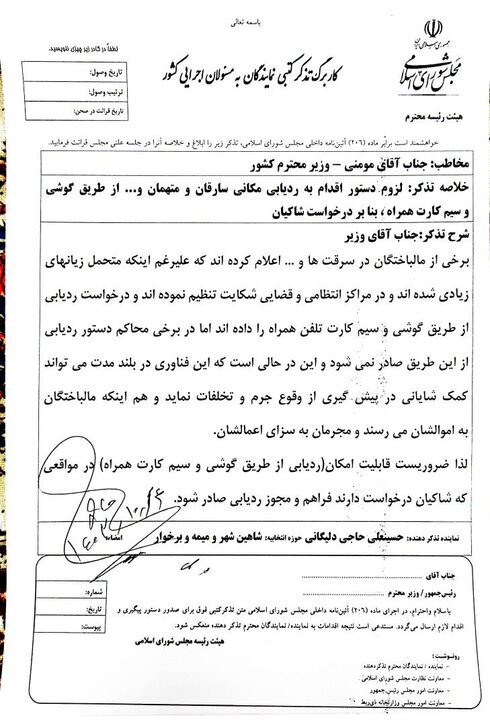 باسمه تعالی
جمهوری اسلامی ایران
مجلس شورای اسلامی
کاربرگ تذکر کتبی نمایندگان به مسئولان اجرایی کشور
لطفاً در کادر زیر چیزی ننویسید.
تاریخ وصول:
ترتیب وصول:
تاریخ قرائت در صحن:
هیئت رئیسه محترم
خواهشمند است برابر ماده (۲۰۶) آئین‌نامه داخلی مجلس شورای اسلامی، تذکر زیر را ابلاغ و خلاصه آنرا در جلسه علنی مجلس قرائت فرمایید.
مخاطب: جناب آقای مومنی – وزیر محترم کشور
خلاصه تذکر: لزوم دستور اقدام به ردیابی مکانی سارقان و متهمان و... از طریق گوشی و سیم کارت همراه، بنا بر درخواست شاکیان
شرح تذکر: جناب آقای وزیر
برخی از مالباختگان در سرقت ها و ... اعلام کرده اند که علیرغم اینکه متحمل زیانهای
زیادی شده اند و در مراکز انتظامی و قضایی شکایت تنظیم نموده اند و درخواست ردیابی
از طریق گوشی و سیم کارت تلفن همراه را داده اند اما در برخی محاکم دستور ردیابی
از این طریق صادر نمی شود و این در حالی است که این فناوری در بلند مدت می تواند
کمک شایانی در پیش گیری از وقوع جرم و تخلفات نماید و هم اینکه مالباختگان
به اموالشان می رسند و مجرمان به سزای اعمالشان.
لذا ضروریست قابلیت امکان(ردیابی از طریق گوشی و سیم کارت همراه) در مواقعی
که شاکیان درخواست دارند فراهم و مجوز ردیابی صادر شود.
نماینده تذکر دهنده: حسینعلی حاجی دلیگانی حوزه انتخابیه: شاهین شهر و میمه و برخوار امضاء
جناب آقای ........
رئیس‌جمهور/ وزیر محترم ........
شماره:
تاریخ:
پیوست:
باسلام واحترام، در اجرای ماده (۲۰۶) آئین‌نامه داخلی مجلس شورای اسلامی متن تذکرکتبی فوق برای صدور دستور پیگیری و
اقدام لازم ارسال می‌گردد. مستدعی است نتیجه اقدامات به نماینده/ نمایندگان محترم تذکر دهنده منعکس شود.
هیئت رئیسه مجلس شورای اسلامی
رونوشت:
- نماینده / نمایندگان محترم تذکردهنده
- معاونت نظارت مجلس شورای اسلامی
- معاونت امور مجلس رئیس‌جمهور
- معاونت امور مجلس وزارتخانه ذی‌ربط